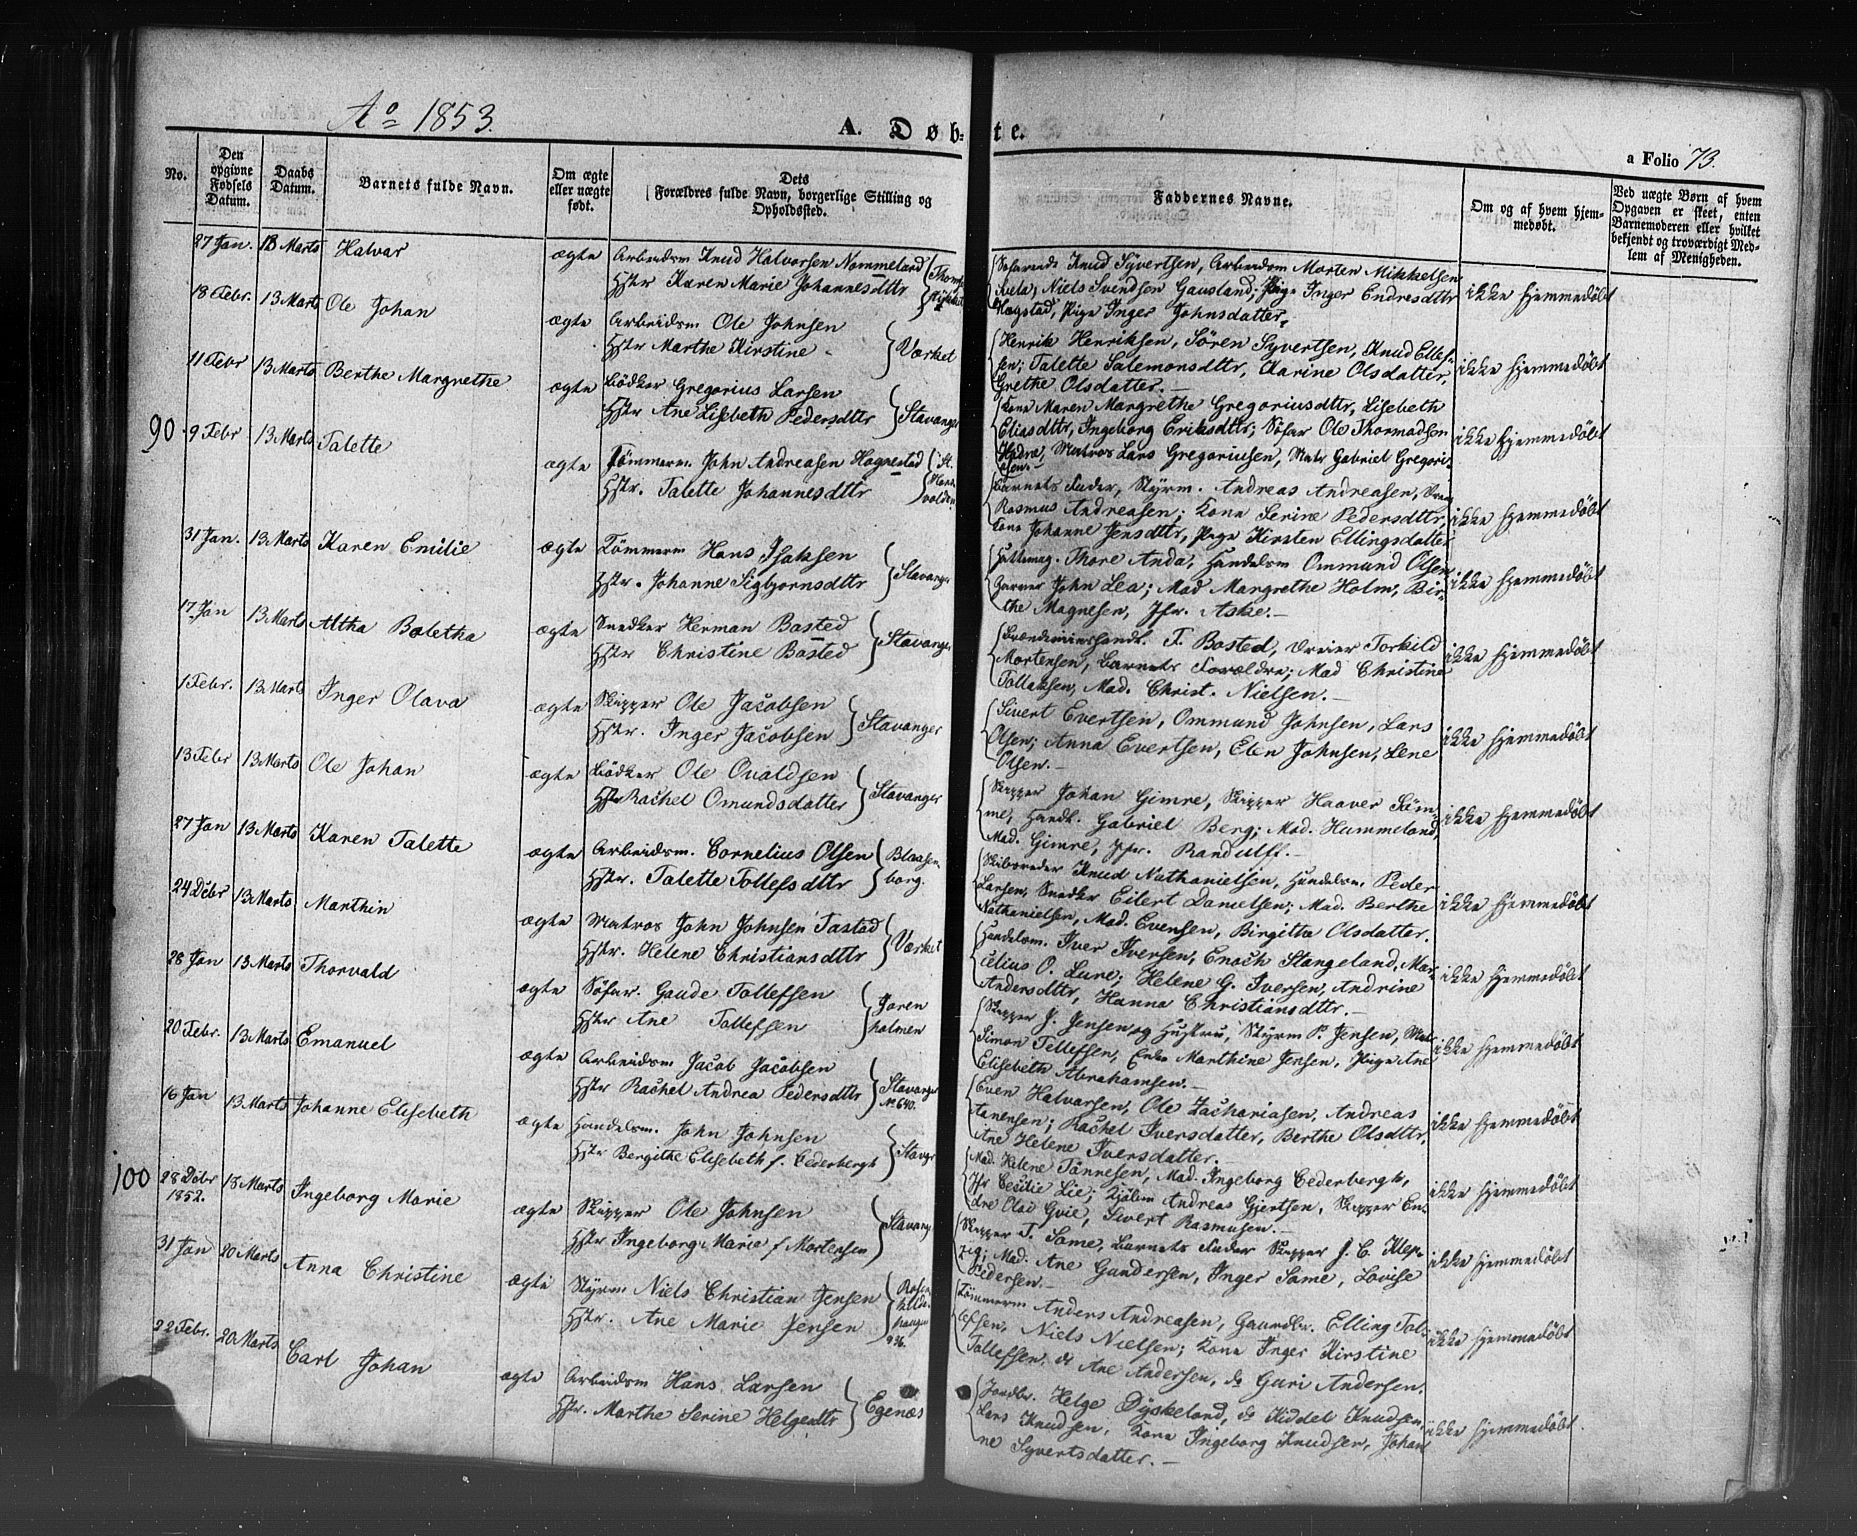 Aº 1853.
A. Døb-te.
a Folio 73.
No.
Den opgivne Fødsels Datum.
Daabs Datum.
Barnets fulde Navn.
Om ægte eller uægte født.
Dets
Forældres fulde Navn, borgerlige Stilling og
Opholdssted.
Faddernes Navne.
Om og af hvem hjem-
medøbt.
Ved uægte Børn af hvem
Opgaven er skeet, enten
Barnemoderen eller hvilket
bekjendt og troværdigt Med-
lem af Menigheden.
27 Jan. 13 Marts Halvar ægte Arbeidsm Knud Halvorsen Nommeland
Hstr Karen Marie Johannesdttr
Knud Syvertsen, Arbeidsm Morten Mikkelsen
Niels Svendsen Gausland; Pige Inger Endresdttr
Hægstad, Pige Inger Johnsdatter.
ikke hjemmedøbt
18 Febr. 13 Marts Ole Johan ægte Arbeidsm Ole Johnsen
Hstr Marthe Kirstine Værket
Henrik Henriksen, Sören Syvertsen, Knud Elles-
sen; Talette Salemonsdttr, Karine Olsdatter,
Grethe Olsdatter.
ikke hjemmedøbt
11 Febr 13 Marts Berthe Margrethe ægte Bödker Gregorius Larsen
Hstr Ane Lisebeth Pedersdttr Stavanger
Kone Maren Margrethe Gregoriusdttr, Lisebeth
Eliasdttr, Ingeborg Eriksdttr; Söfar Ole Thormodsen
Matros Lars Gregoriusen, Matr Gabriel Gregori-
usen.
ikke hjemmedøbt
90 9 Febr 13 Marts Talette ægte Tömmerm. John Andreasen Hognestad
Hstr. Talette Johannesdttr
Barnets Fader, Styrm. Andreas Andreasen,
Rasmus Andreasen; Kone Serine Pedersdttr,
Kone Johanne Jensdttr, Pige Kirsten Ellingsdatter
ikke hjemmedøbt
31 Jan. 13 Marts Karen Emilie ægte Tömmerm Hans Isaksen
Hstr. Johanne Sigbjornsdttr Stavanger
Hattemag. Thore Anda, Handelsm Ommund Olsen
Garver John Lea; Mad Margrethe Holm, Bir-
the Magnesen, Jfr. Aske.
ikke hjemmedøbt
17 Jan 13 Marts Altha Boletha ægte Snedker Herman Bøsted
Hstr Christine Bøsted Stavanger
T. Bosted, Torkild
Mortensen, Barnets Forældre; Mad Christine
Tollaksen, Mad. Christ. Nielsen.
ikke hjemmedøbt
1 Febr. 13 Marts Inger Olava ægte Skipper Ole Jacobsen
Hstr. Inger Jacobsen Stavanger
Sivert Evertsen, Ommund Johnsen, Lars
Olsen; Anna Evertsen, Elen Johnsen, Lene
Olsen.
ikke hjemmedøbt
13 Febr 13 Marts Ole Johan ægte Bödker Ole Ovaldsen
Hstr Rachel Omundsdatter Stavanger
Skipper Johan Gimre, Skipper Haaver Söm-
me, Handl. Gabriel Berg; Mad. Hummeland,
Mad. Gimre, Jfr. Randulff.
ikke hjemmedøbt
27 Jan 13 Marts Karen Talette ægte Arbeidsm. Cornelius Olsen
Hstr. Talette Tollefsdttr Blaasen-
borg.
Skibsreder Knud Nathanielsen, Handelsm. Peder
Larsen, Snedker Eilert Danielsen; Mad. Berthe
Nathanielsen, Mad. Evensen, Birgitha Olsdatter.
ikke hjemmedøbt
24 Debr 13 Marts Marthin ægte Matros John Johnsen Tastad
Hstr. Helene Christiansdttr Værket
Handelsm. Iver Iversen, Enoch Stangeland, Mar-
celius O. Lure; Helene G. Iversen, Andrine
Andersdttr, Hanna Christiansdttr.
ikke hjemmedøbt
28 Jan 13 Marts Thorvald ægte Söfar. Gaude Tollefsen
Hstr Ane Tollefsen Joren
holmen
Skipper J. Jensen og Hustru, Styrm P. Jensen, Matr
Simon Tellefsen, Enke Marthine Jensen, Pige Ane
Elisebeth Abrahamsen.
ikke hjemmedøbt
20 Febr. 13 Marts Emanuel ægte Arbeidsm Jacob Jacobsen
Hstr Rachel Andrea Pedersdttr Stavanger
No 640.
Even Halvarsen, Ole Zachariasen, Andreas
Aanensen; Rachel Iversdatter, Berthe Olsdttr,
Ane Helene Iversdatter.
ikke hjemmedøbt
16 Jan 13 Marts Johanne Elisebeth ægte Handelsm. John Johnsen
Hstr Bergithe Elisebeth f. Cederbergh Stavgr
Mad. Helene Tönnesen, Mad. Ingeborg Cederbergh,
Jfr Cecilie Lie; Andreas Gjertsen, Skipper En-
dre Olad Gvie, Sivert Rasmusen.
ikke hjemmedøbt
100 28 Debr
1852. 18 Marts Ingeborg Marie ægte Skipper Ole Johnsen
Hstr Ingeborg Maria f Mortensen Stavang
Skipper T. Some, Barnets Fader Skipper J. C. Klep-
zig; Mad. Ane Gundersen, Inger Some, Lovise
Pedersen.
ikke hjemmedøbt
31 Jan 20 Marts Anna Christine ægte Styrm Niels Christian Jensen
Hstr. Ane Marie Jensen
936.
Tömmerm Anders Andreasen, Gaardbr. Elling Tol-
lefsen, Niels Nielsen; Kone Inger Kirstine
Tollefsen, do Ane Andersen, do Guri Andersen.
ikke hjemmedøbt
22 Febr. 20 Marts Carl Johan ægte Arbeidsm Hans Larsen
Hstr. Marthe Serine Helgesdttr Egenæs
Jordbr. Helge Dyskeland, do Kiddel Knudsen,
Lars Knudsen, Kone Ingeborg Knudsen, Johan
ne Syvertsdatter.
ikke hjemmedøbt